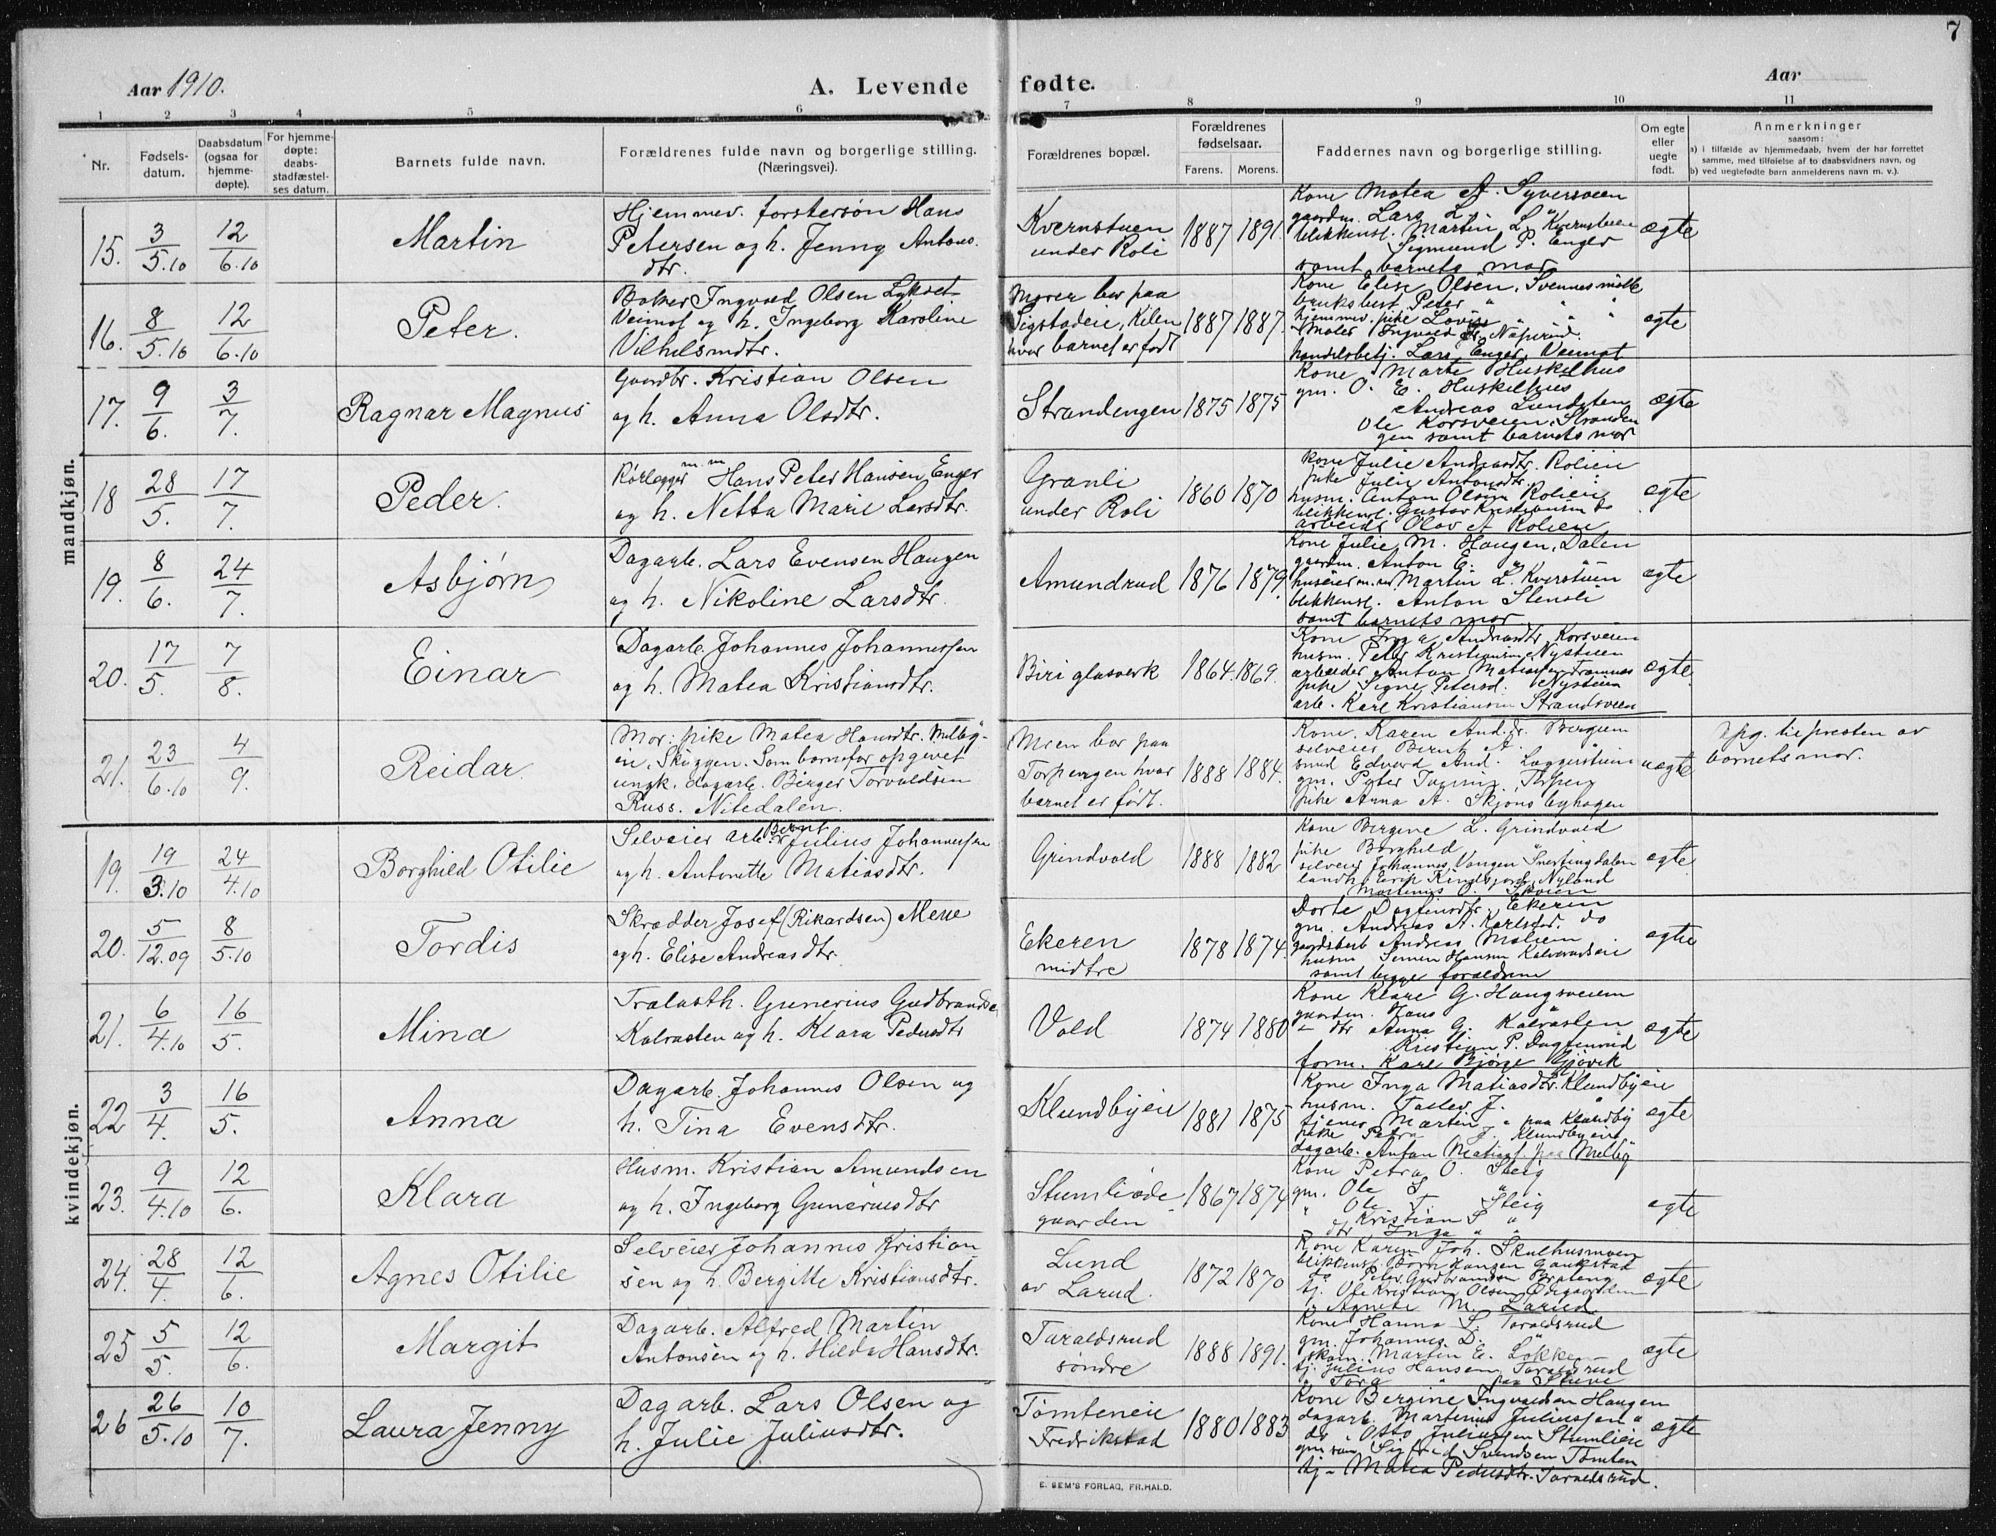 7
Aar 1910.
A. Levende fødte.
Aar
1 2 3 4 5 6 7 8 9 10 11
Nr.
Fødsels-
datum.
Daabsdatum
(ogsaa for
hjemme-
døpte).
For hjemme-
døpte:
daabs-
stadfæstel-
ses datum.
Barnets fulde navn.
Forældrenes fulde navn og borgerlige stilling.
(Næringsvei).
Forældrenes bopæl.
Forældrenes
fødselsaar.
Farens. Morens.
Faddernes navn og borgerlige stilling.
Om egte
eller
uegte
født.
Anmerkninger
saasom:
a) i tilfælde av hjemmedaab, hvem der har forrettet
samme, med tilføielse af to daabsvidners navn, og
b) ved uegtefødte børn anmelderens navn m. v.).
mandkjøn.
15. 3/5.10 12/6.10 Martin
Hjemmev. forstersøn Hans
Petersen og h. Jenny Antons.
dtr.
Kvernstuen
under Roli
1887 1891.
Kone Matea A. Syversveen
gaardm. Lars L. "
blikkensl. Martin L. Kvernstuen
Sigmund P. Enger
samt barnets mor
ægte
16. 8/5.10 12/6.10 Peter.
Baker Ingvald Olsen Lykset
Veimot og h. Ingeborg Karoline
Vilhelsmdtr.
Moren bor paa
Sigstadeie, Kilen
hvor barnet er født
1887 1887.
Kone Elise Olsen, Svennes mølle
bruksbest. Peter " "
hjemmev. pike Lovise " "
Maler Ingvald Naperud.
handelsbetj. Lars Enger, Veimot
ægte
17. 9/6. 3/7. Ragnar Magnus
Gaardbr. Kristian Olsen
og h. Anna Olsdtr.
Strandengen
1875 1875
Kone Marte Huskelhus
gm. O. E. Huskelhus
Andreas Lundsten
Ole Korsveien, Stranden
gen samt barnets mor
ægte
18 28/5. 17/7. Peder.
Rørlegger m.m Hans Peter Hansen Enger
og h. Netta Marie Larsdtr.
Granli
under Roli
1860 1870
Kone Julie Andreasdtr. Rolien
pike Julie Antonsdtr. "
husm. Anton Olsen Rolien
blikkensl. Gustav Kristiansen do
arbeider Olav A Rolien
ægte
19. 8/6. 24/7. Asbjørn
Dagarb. Lars Evensen Haugen
og h. Nikoline Larsdtr.
Amundrud
1876 1879.
Kone Julie M. Haugen, Dalen
gaardm. Anton E. " "
huseier m.m Martin L. Kverstuen
blikkensl. Anton Stensli
samt barnets mor
ægte
20. 17/5. 7/8. Einar
Dagarb. Johannes Johannessen
og h. Matea Kristiansdtr.
Biri glasverk
1864. 1869.
Kone Inga Andreasdtr. Korsveien
husm. Peter Kristiansen Nystuen
arbeider Anton Matiassen Framnes
pike Signe Petersd. Nystuen
arb. Karl Kristiansen Strandsveen
ægte.
21. 23/6.10 4/9. Reidar.
Mor: pike Matea Hansdtr. Melby-
eie, Skuggen. Som barnefar opgivet
ungk. dagarb. Birger Torvaldsen
Russ. Nitedalen.
Moren bor paa
Torpengen hvor
barnet er født.
1888 1884.
Kone Karen And.dr. Bergum
selveier Bernt A. "
smed Edvard And. Laggerstuen
gm. Peter Torpen
pike Anna A. Skjønsbyhagen
uægte
Opg. til presten av
barnets mor.
kvindekjøn.
19. 19/3.10 24/4.10 Borghild Otilie
Selveier arb. Bernt Julius Johannessen
og h. Antonette Matiasdtr.
Grindvold
1888 1882
Kone Bergine L. Grindvold
pike Borghild "
selveier Johannes Vangen Snertingdalen
Nyland
ægte
20. 5/12.09 8/5.10 Tordis
Skrædder Josef (Rikardsen) Mene
og h. Elise Andreasdtr.
Ekeren
midtre
1878 1874.
Dorte Dagfinsdtr. Ekeren
gm. Andreas A. Karlsdtr. do
gaardsbest Andreas Moheim
husm Simen Hansen Kalverudseie
samt begge forældrene
ægte
21. 6/4.10 16/5. Mina
Trælasth. Gunerius Gudbrands.
Kalrasten og h. Klara Pedersdtr
Vold
1874 1880
Kone Klare G. Haugsveien
gaardm. Hans "
— dtr Anna G. Kalrasten
Kristian P. Dagfinrud
form. Karl Bjørge Gjøvik
ægte
22 3/4. 16/5. Anna
Dagarb. Johannes Olsen og
h. Tina Evensdtr.
Klundbyeie
1881 1875
Kone Inga Matiasdtr. Klundbyeie
husm. J. "
tjener Martin " paa Klundby
pike Petra J. Klundbyeie
dagarb. Anton Matias. paa Melby
ægte
23. 9/4.10 12/6. Klara
Husm. Kristian Amundsen
og h. Ingeborg Guneriusdtr
Stumliøde-
gaarden
1867 1874
Kone Petra O. Steig
gm. Ole S "
" Ole T. Steig
Kristian S "
dtr Inga "
ægte
24. 28/4. 12/6. Agnes Otilie
Selveier Johannes Kristian
sen og h. Bergitte Kristiansdtr.
Lund
av Larud.
1872 1870
Kone Karen Joh. Skulhusmoen
blikkensl. Børn Haugen Gaukstad
do Peter Gudbrandsen Brateng
tj. Ole Kristian Olsen Ødegaarden
" Agnete M. Larud
ægte
25 5/5. 12/6. Margit
Dagarb. Alfred Martin
Antonsen og h. Hilda Hansdtr.
Taraldsrud
søndre
1888 1891.
Kone Hanna S. Taraldsrud
gm. Johannes D. "
skom. Martin E. Løkken
tj. Julius Hansen Taraldsrud
" Tora " paa Stuve
ægte
26 26/5.10 10/7. Laura Jenny
Dagarb. Lars Olsen og
h. Julie Juliusdtr.
Tømteneie
Fredrikstad
1880 1883
Kone Bergine Ingvaldsen Haugen
dagarb. Martinius Juliussen "
do Otto Juliussen Stumlieie
gm søn Sigfred Svendsen Tømten
tj — Matea Pedersdtr. Taraldsrud.
ægte
E. SEM'S FORLAG, FR.HALD.